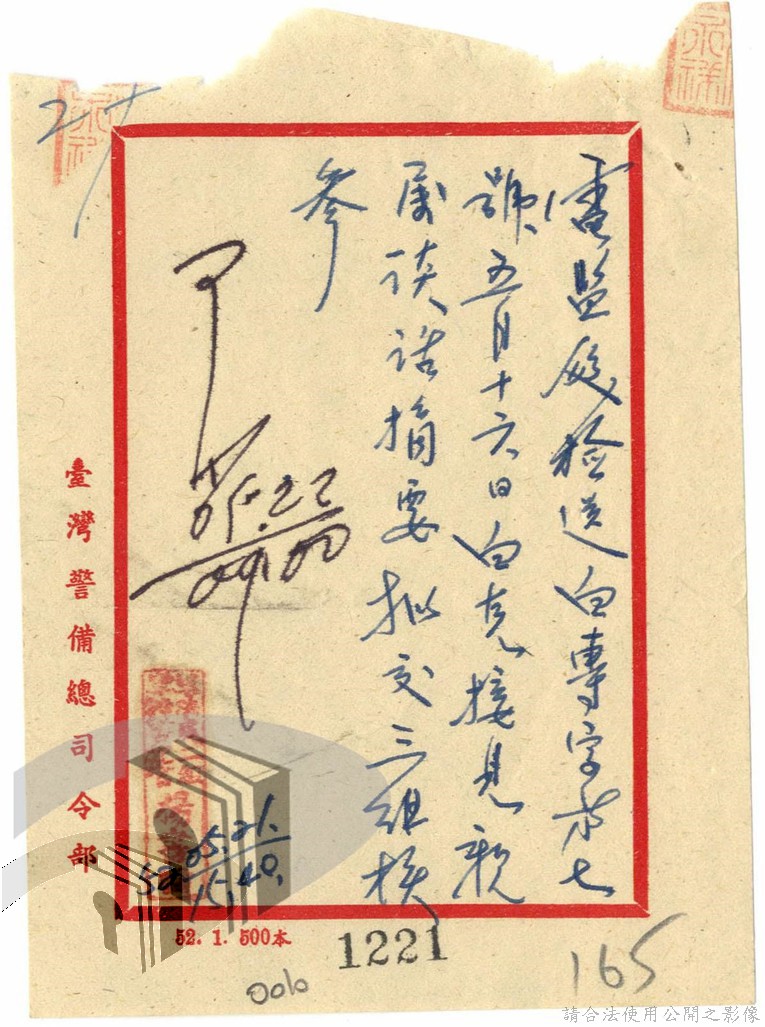 電監處檢送白專字第七
號五月十六日白克接見親
属談話摘要擬交三組核
參
05.22
0900
05.21.
1540.
臺灣警備總司令部
52. 1. 500本
1221
165
請合法使用公開之影像